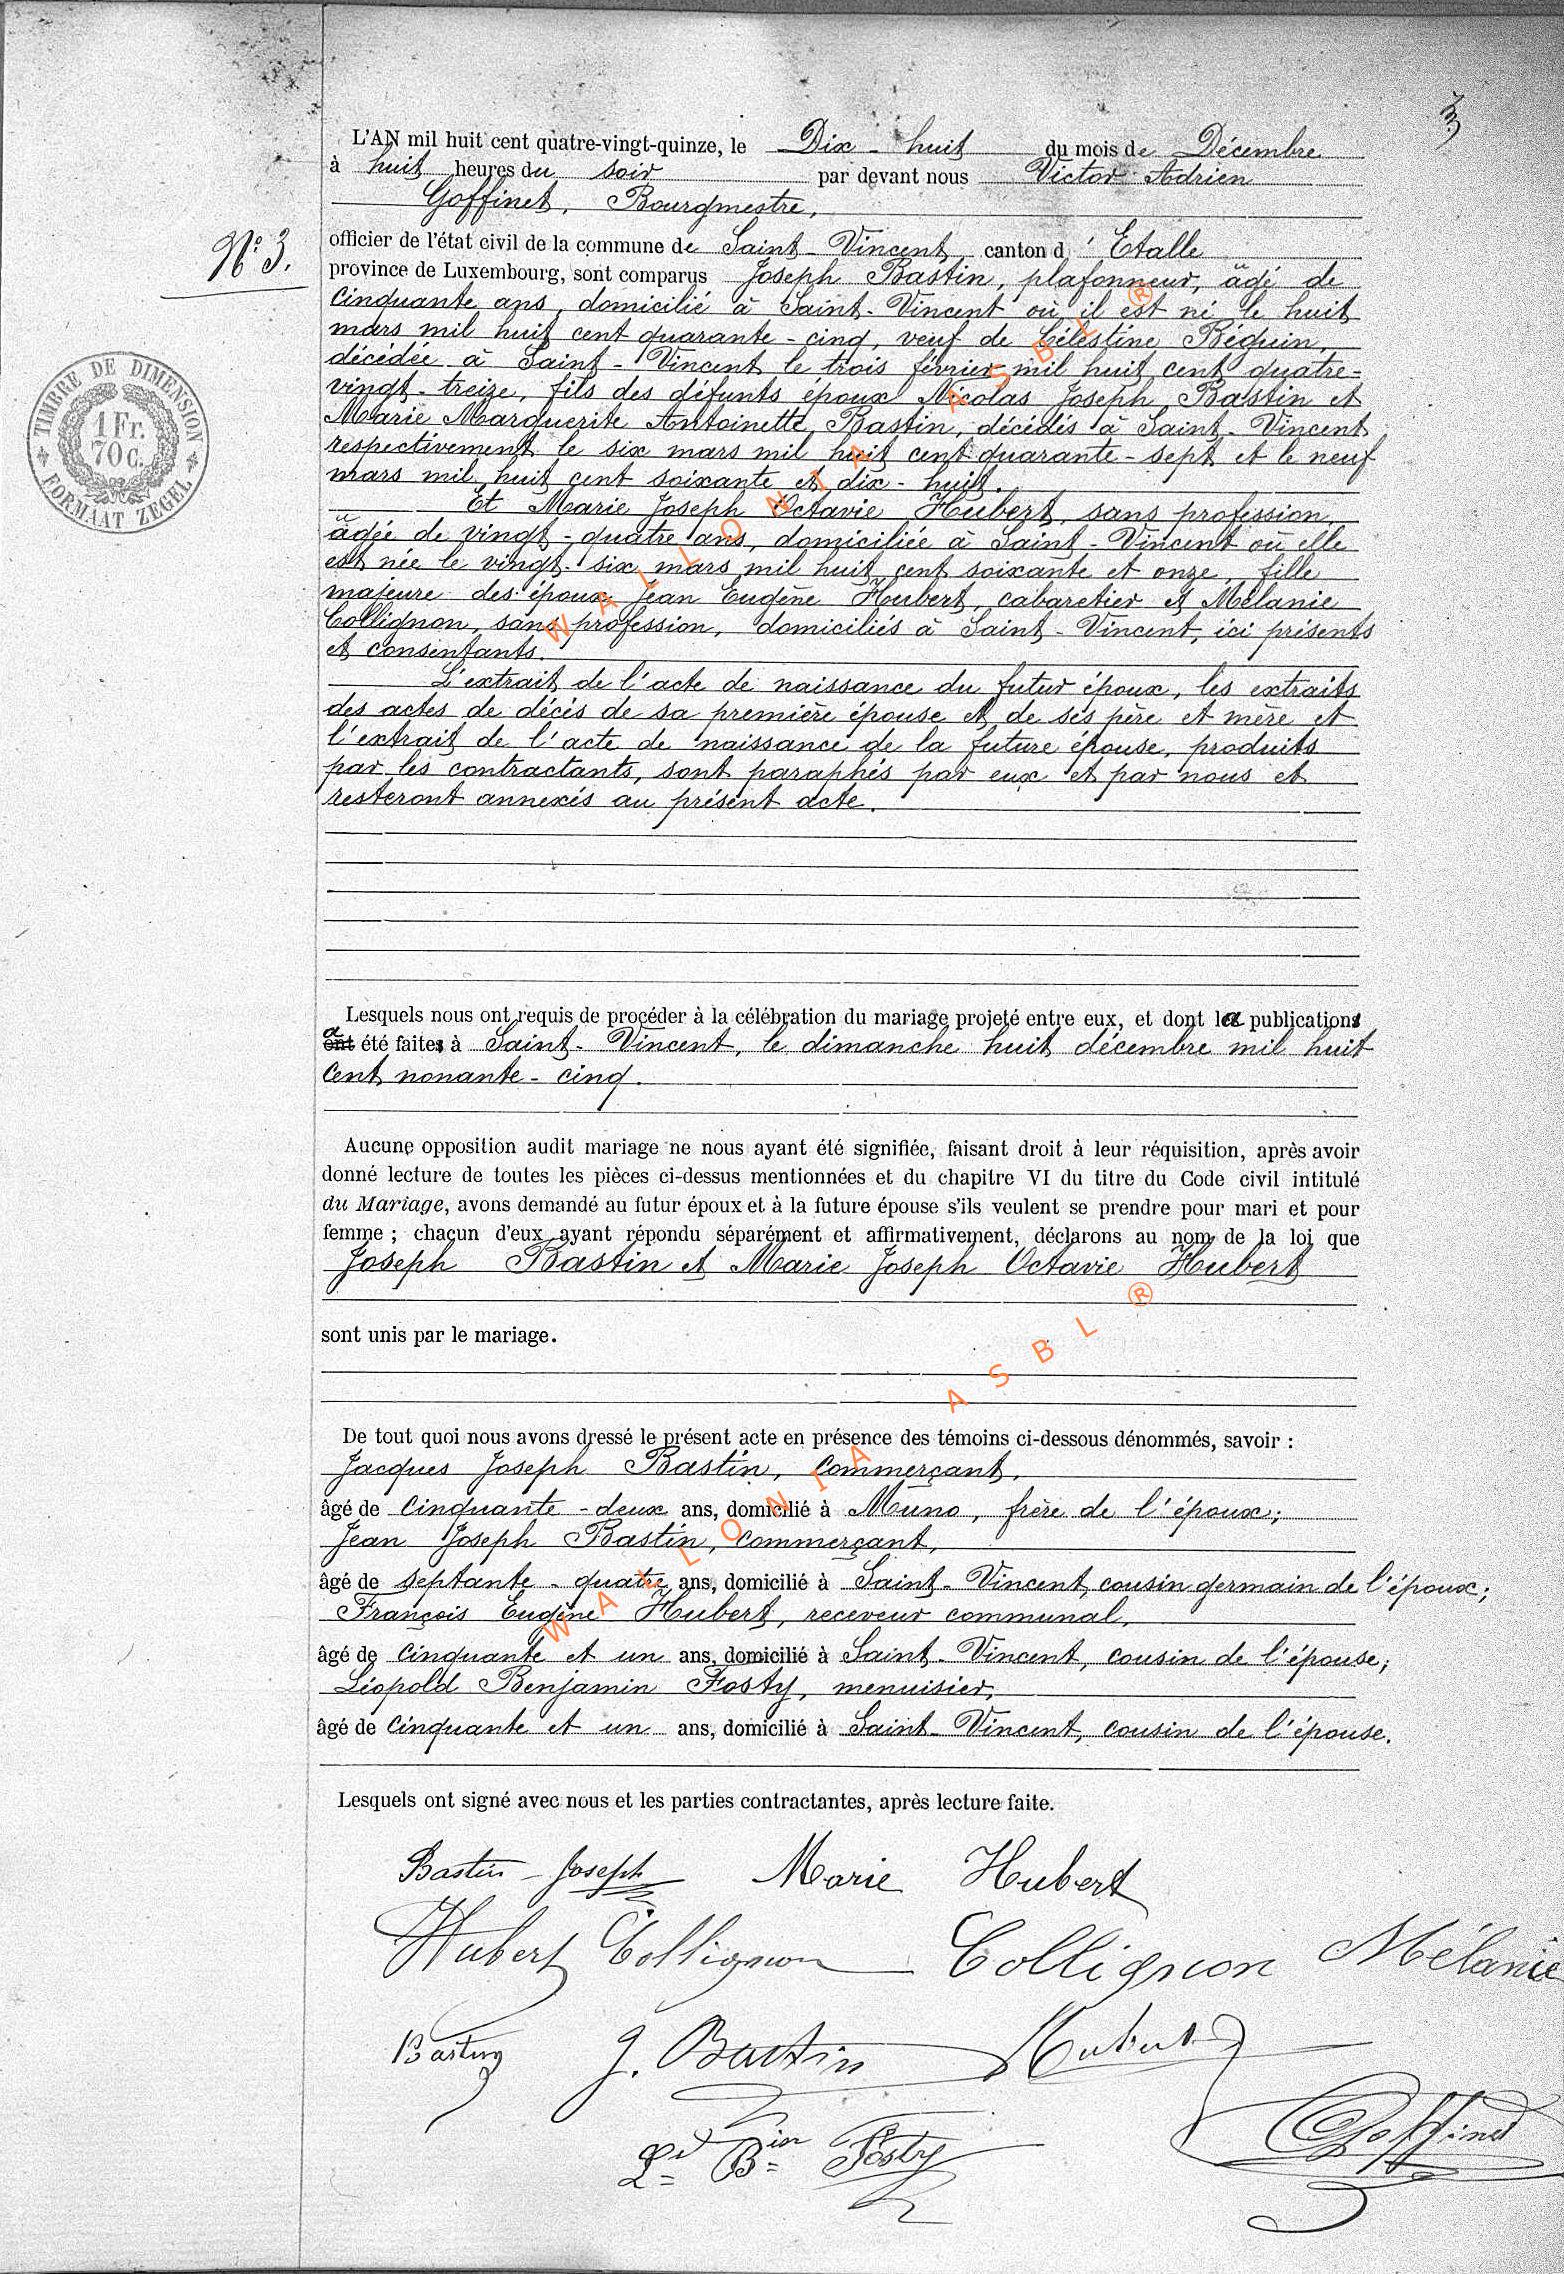 3
L'AN mil huit cent quatre-vingt-quinze, le Dix-huit du mois de Décembre
à huit heures du soir par devant nous Victor Adrien
Goffinet, Bourgmestre,
N° 3.
officier de l'état civil de la commune de Saint-Vincent, canton d'Etalle
province de Luxembourg, sont comparus Joseph Bastin, plafonneur, âgé de
cinquante ans, domicilié à Saint-Vincent où il est né le huit
mars mil huit cent quarante-cinq, veuf de Célestine Béguin,
décédée à Saint-Vincent le trois février mil huit cent quatre-
vingt-treize, fils des défunts époux Nicolas Joseph Bastin et
Marie Marguerite Antoinette Bastin, décédés à Saint-Vincent
respectivement le six mars mil huit cent quarante-sept et le neuf
mars mil huit cent soixante et dix-huit.
Et Marie Joseph Octavie Hubert, sans profession,
âgée de vingt-quatre ans, domiciliée à Saint-Vincent où elle
est née le vingt-six mars mil huit cent soixante et onze, fille
majeure des époux Jean Eugène Hubert, cabaretier et Mélanie
Collignon, sans profession, domiciliés à Saint-Vincent, ici présents
et consentants.
L'extrait de l'acte de naissance du futur époux, les extraits
des actes de décès de sa première épouse et de ses père et mère et
l'extrait de l'acte de naissance de la future épouse, produits
par les contractants, sont paraphés par eux et par nous et
resteront annexés au présent acte.
TIMBRE DE DIMENSION
1 Fr.
70 c.
FORMAAT ZEGEL
Lesquels nous ont requis de procéder à la célébration du mariage projeté entre eux, et dont la publication
a ont été faite à Saint-Vincent, le dimanche huit décembre mil huit
cent nonante-cinq.
Aucune opposition audit mariage ne nous ayant été signifiée, faisant droit à leur réquisition, après avoir
donné lecture de toutes les pièces ci-dessus mentionnées et du chapitre VI du titre du Code civil intitulé
du Mariage, avons demandé au futur époux et à la future épouse s'ils veulent se prendre pour mari et pour
femme ; chacun d'eux ayant répondu séparément et affirmativement, déclarons au nom de la loi que
Joseph Bastin et Marie Joseph Octavie Hubert
sont unis par le mariage.
De tout quoi nous avons dressé le présent acte en présence des témoins ci-dessous dénommés, savoir :
Jacques Joseph Bastin, commerçant,
âgé de cinquante-deux ans, domicilié à Muno, frère de l'époux;
Jean Joseph Bastin, commerçant,
âgé de septante-quatre ans, domicilié à Saint-Vincent, cousin germain de l'époux;
François Eugène Hubert, receveur communal,
âgé de cinquante et un ans, domicilié à Saint-Vincent, cousin de l'épouse;
Léopold Benjamin Fosty, menuisier,
âgé de cinquante et un ans, domicilié à Saint-Vincent, cousin de l'épouse.
Lesquels ont signé avec nous et les parties contractantes, après lecture faite.
Bastin Joseph Marie Hubert
Hubert Collignon Collignon Mélanie
Bastin J. Bastin Hubert
Ld Bin Fosty Goffinet
WALLONIA ASBL ®
WALLONIA ASBL ®